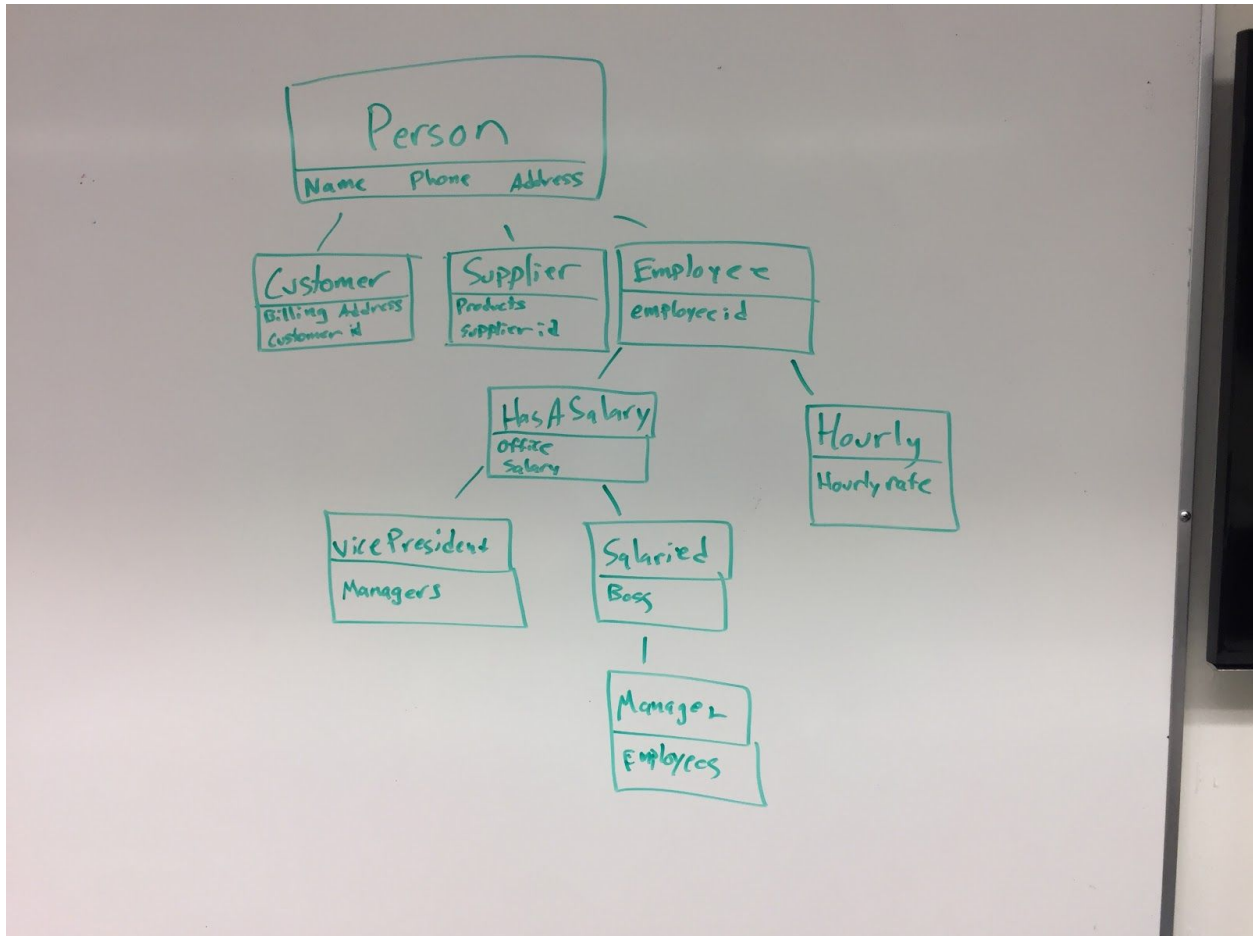 Person
Name Phone Address
Customer
Billing Address
Customer id
Supplier
Products
supplier id
Employee
employee id
HasASalary
office
Salary
Hourly
Hourly rate
vicePresident
Managers
Salaried
Boss
Manager
Employees